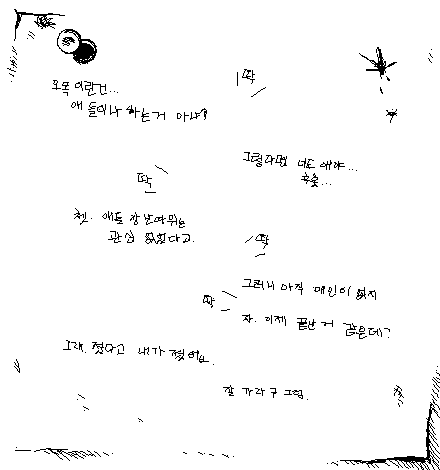 오목 이란건...
애 들이나 하는거 아냐?
딱
그렇다면 너도 애야...
쿳쿳...
딱
쳇. 애들 장난따위는
관심 없었다고.
딱
그러니 아직 애인이 없지
딱
자. 이제 끝난 거 같은데?
그래. 졌다고 내가 졌어.
잘 가라구 그럼.